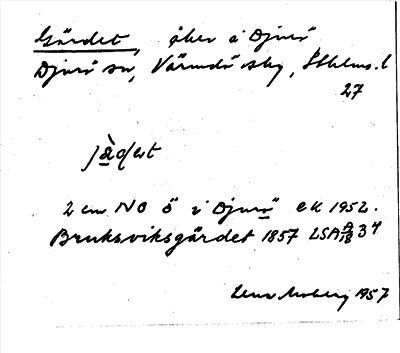 Gärdet, åker å Djurö
Djurö sn, Värmdö skg, Sthlms. l
27
jä̀ḍet
2 cm NO ö i Djurö ek 1952.
Bruksviksgärdet 1857 LSA A/18 3⁷
Lena Moberg 1957